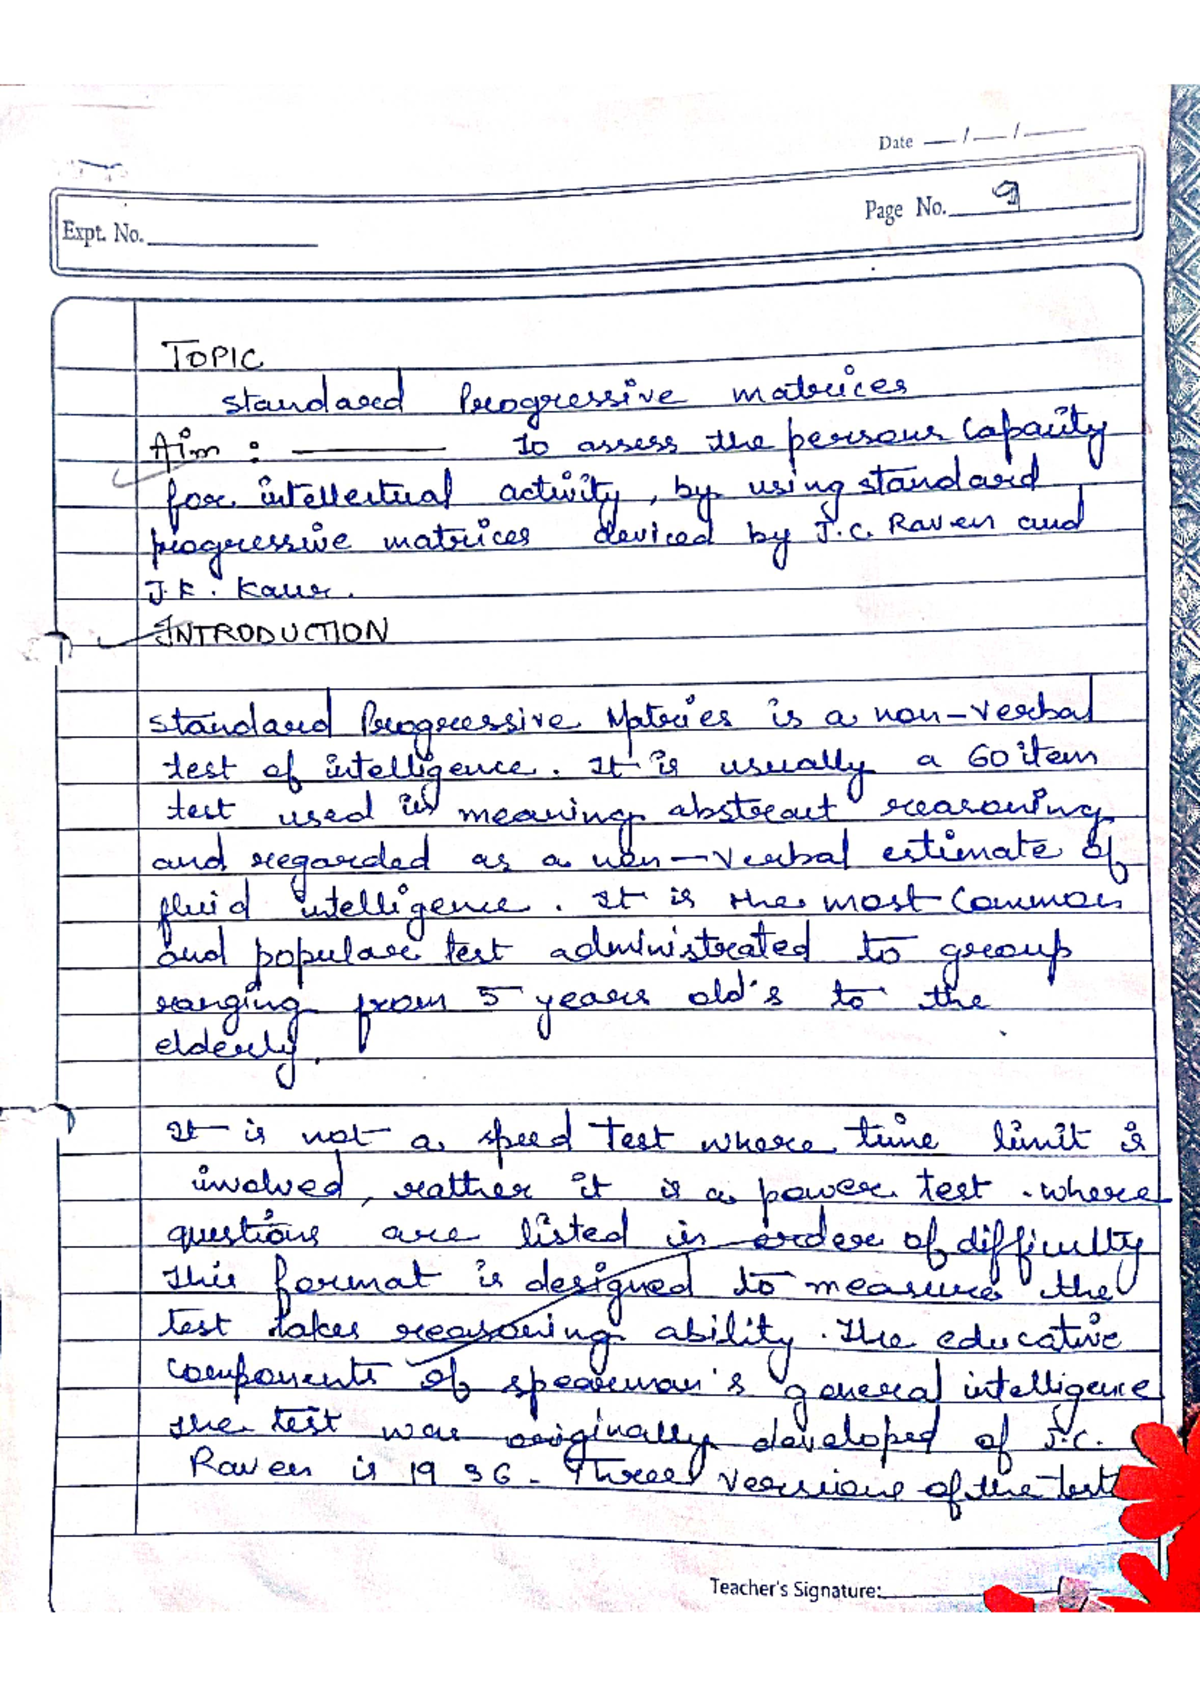 Date __/__/____
Page No. 9
Expt. No.
TOPIC
Standard Progressive matrices
Aim : ——— To assess the persons capacity
for intellectual activity, by using standard
progressive matrices deviced by J.C. Raven and
J.K. Kaur.
INTRODUCTION
Standard Progressive Matries is a non-verbal
test of intelligence. It is usually a 60 item
test used is meaning abstract reasoning
and regarded as a non-verbal estimate of
fluid intelligence. It is the most common
and popular test administrated to group
ranging from 5 years old's to the
elderly.
It is not a speed Test where time limit is
involved, rather it is a power test. where
questions are listed in order of difficulty
This format is designed to measure the
test takes reasoning ability. The educative
components of spearman's general intelligence
the test was originally developed of J.C.
Raven is 1936. Three versions of the test
Teacher's Signature: